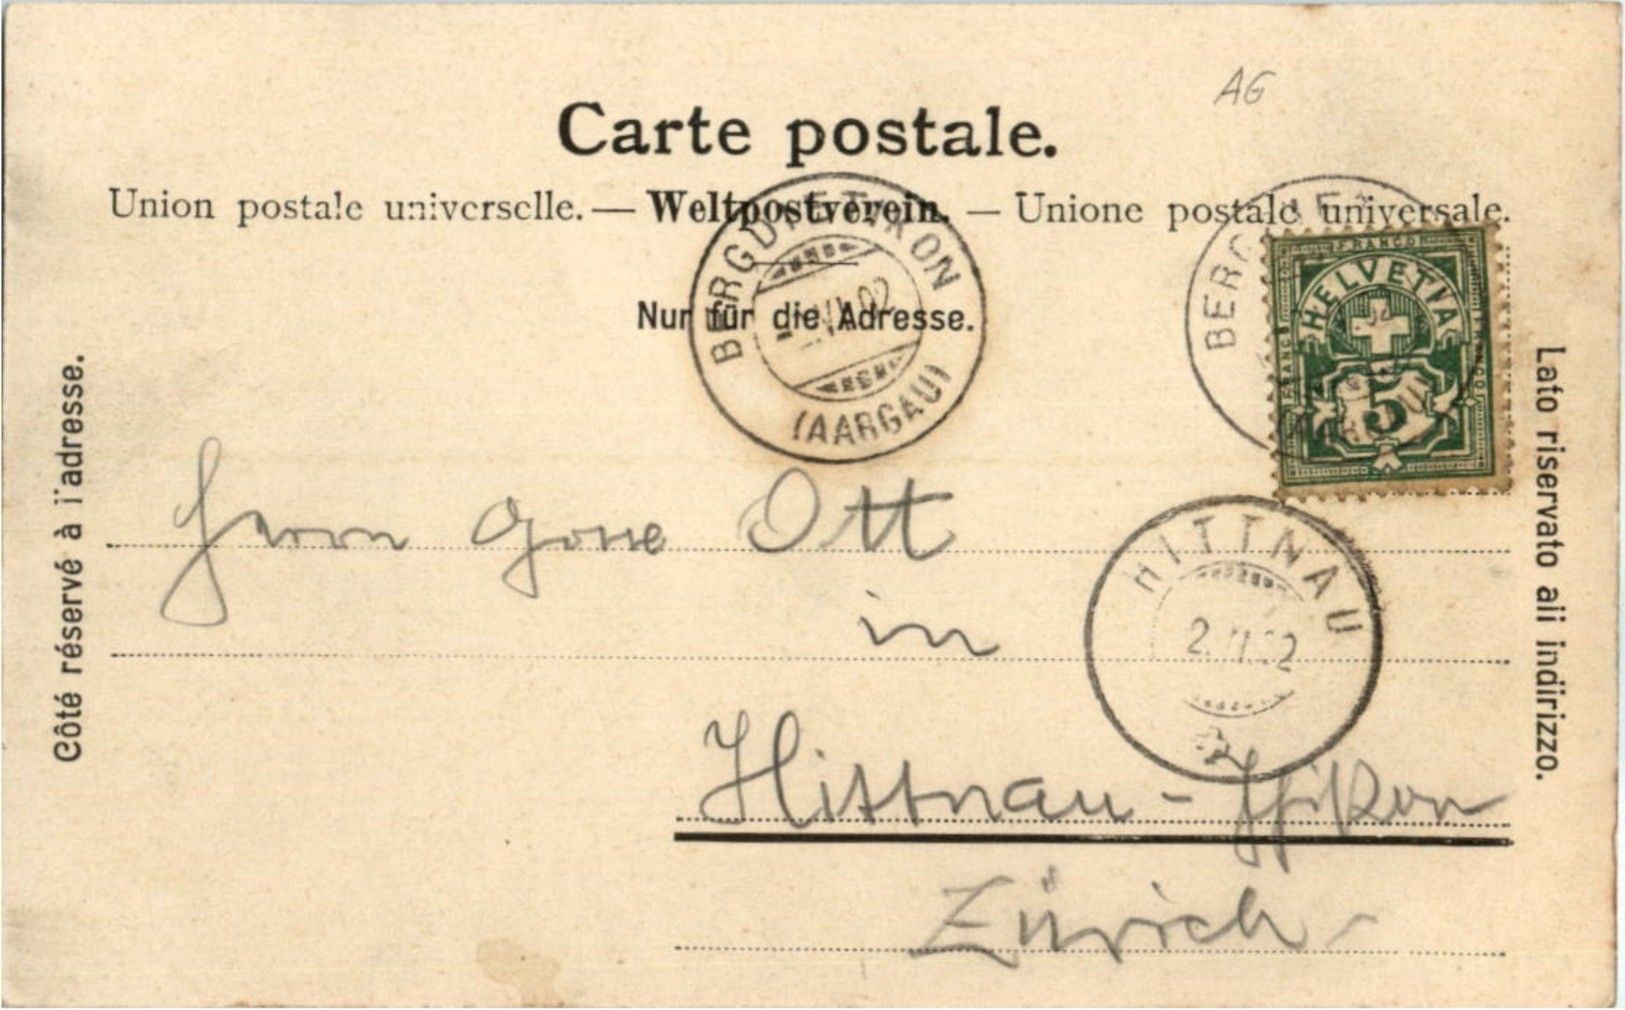 AG
Carte postale.
Union postale universelle. — Weltpostverein. — Unione postale universale.
Nur für die Adresse.
Côté réservé à l'adresse.
Lato riservato all indirizzo.
BERGDIETIKON
(AARGAU)
VI.02
FRANCO
HELVETIA
5
HITTNAU
Herrn Ott
in
Hittnau-
Zürich